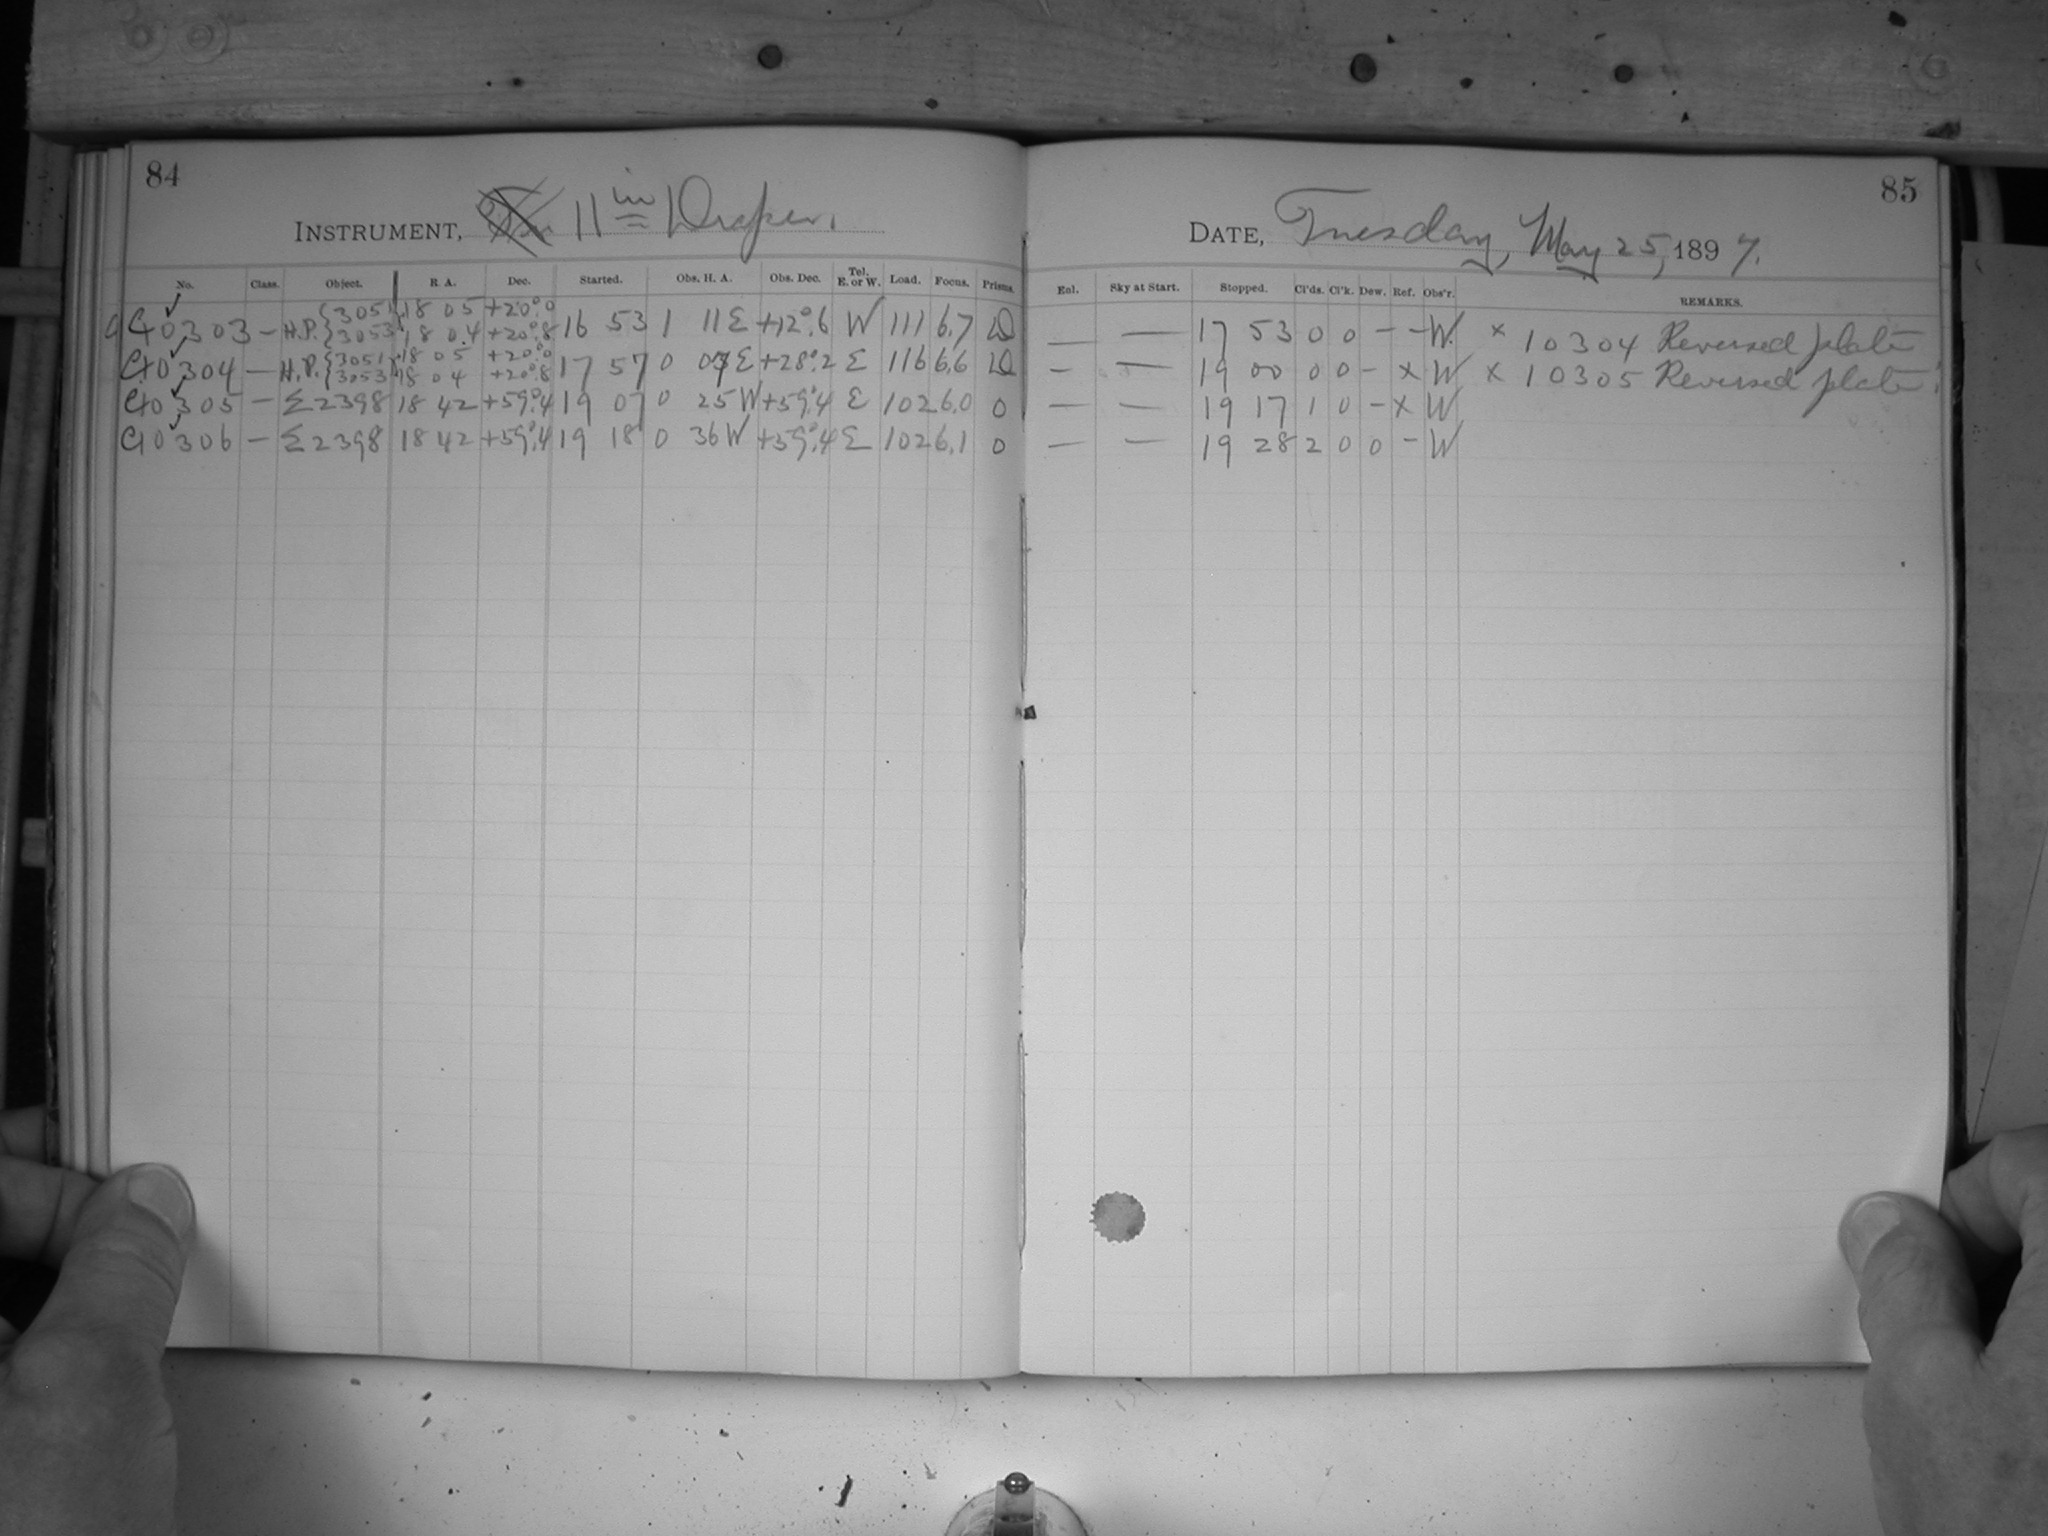 84
INSTRUMENT, 11 in Draper.
No. Class. Object. R. A. Dec. Started. Obs. H. A. Obs. Dec. Tel. E. or W. Load. Focus. Prisms.
C10303 — H.P. {3051 3053} 18 05 18 04 +20°.0 +20°.8 16 53 1 11 E +12°.6 W 111 6.7 D
C10304 — H.P. {3051 3053} 18 05 18 04 +20°.0 +20°.8 17 57 0 07 E +28°.2 E 116 6.6 D
C10305 — Σ 2398 18 42 +59°.4 19 07 0 25 W +59°.4 E 102 6.0 0
C10306 — Σ 2398 18 42 +59°.4 19 18 0 36 W +59°.4 E 102 6.1 0
85
DATE, Tuesday, May 25, 1897.
Enl. Sky at Start. Stopped. Cl'ds. Cl'k. Dew. Ref. Obs'r. REMARKS.
— — 17 53 0 0 – – W. × 10304 Reversed plate
– — 19 00 0 0 – × W × 10305 Reversed plate
— — 19 17 1 0 – × W
— — 19 28 2 0 0 – W